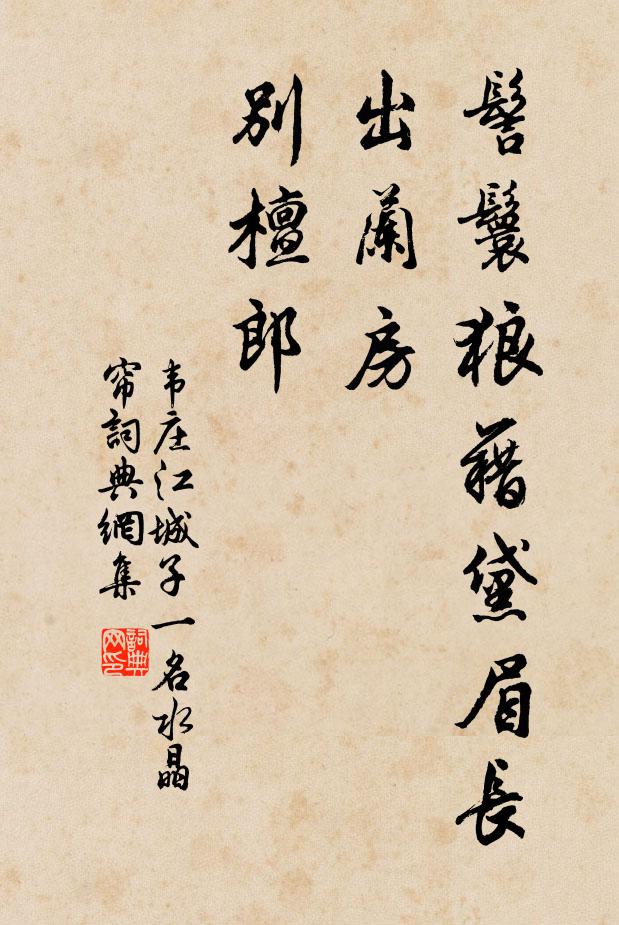 髻鬟狼藉黛眉長
出蘭房
別檀郎
韦庄江城子一名水晶
帘詞典網集
詞典网印